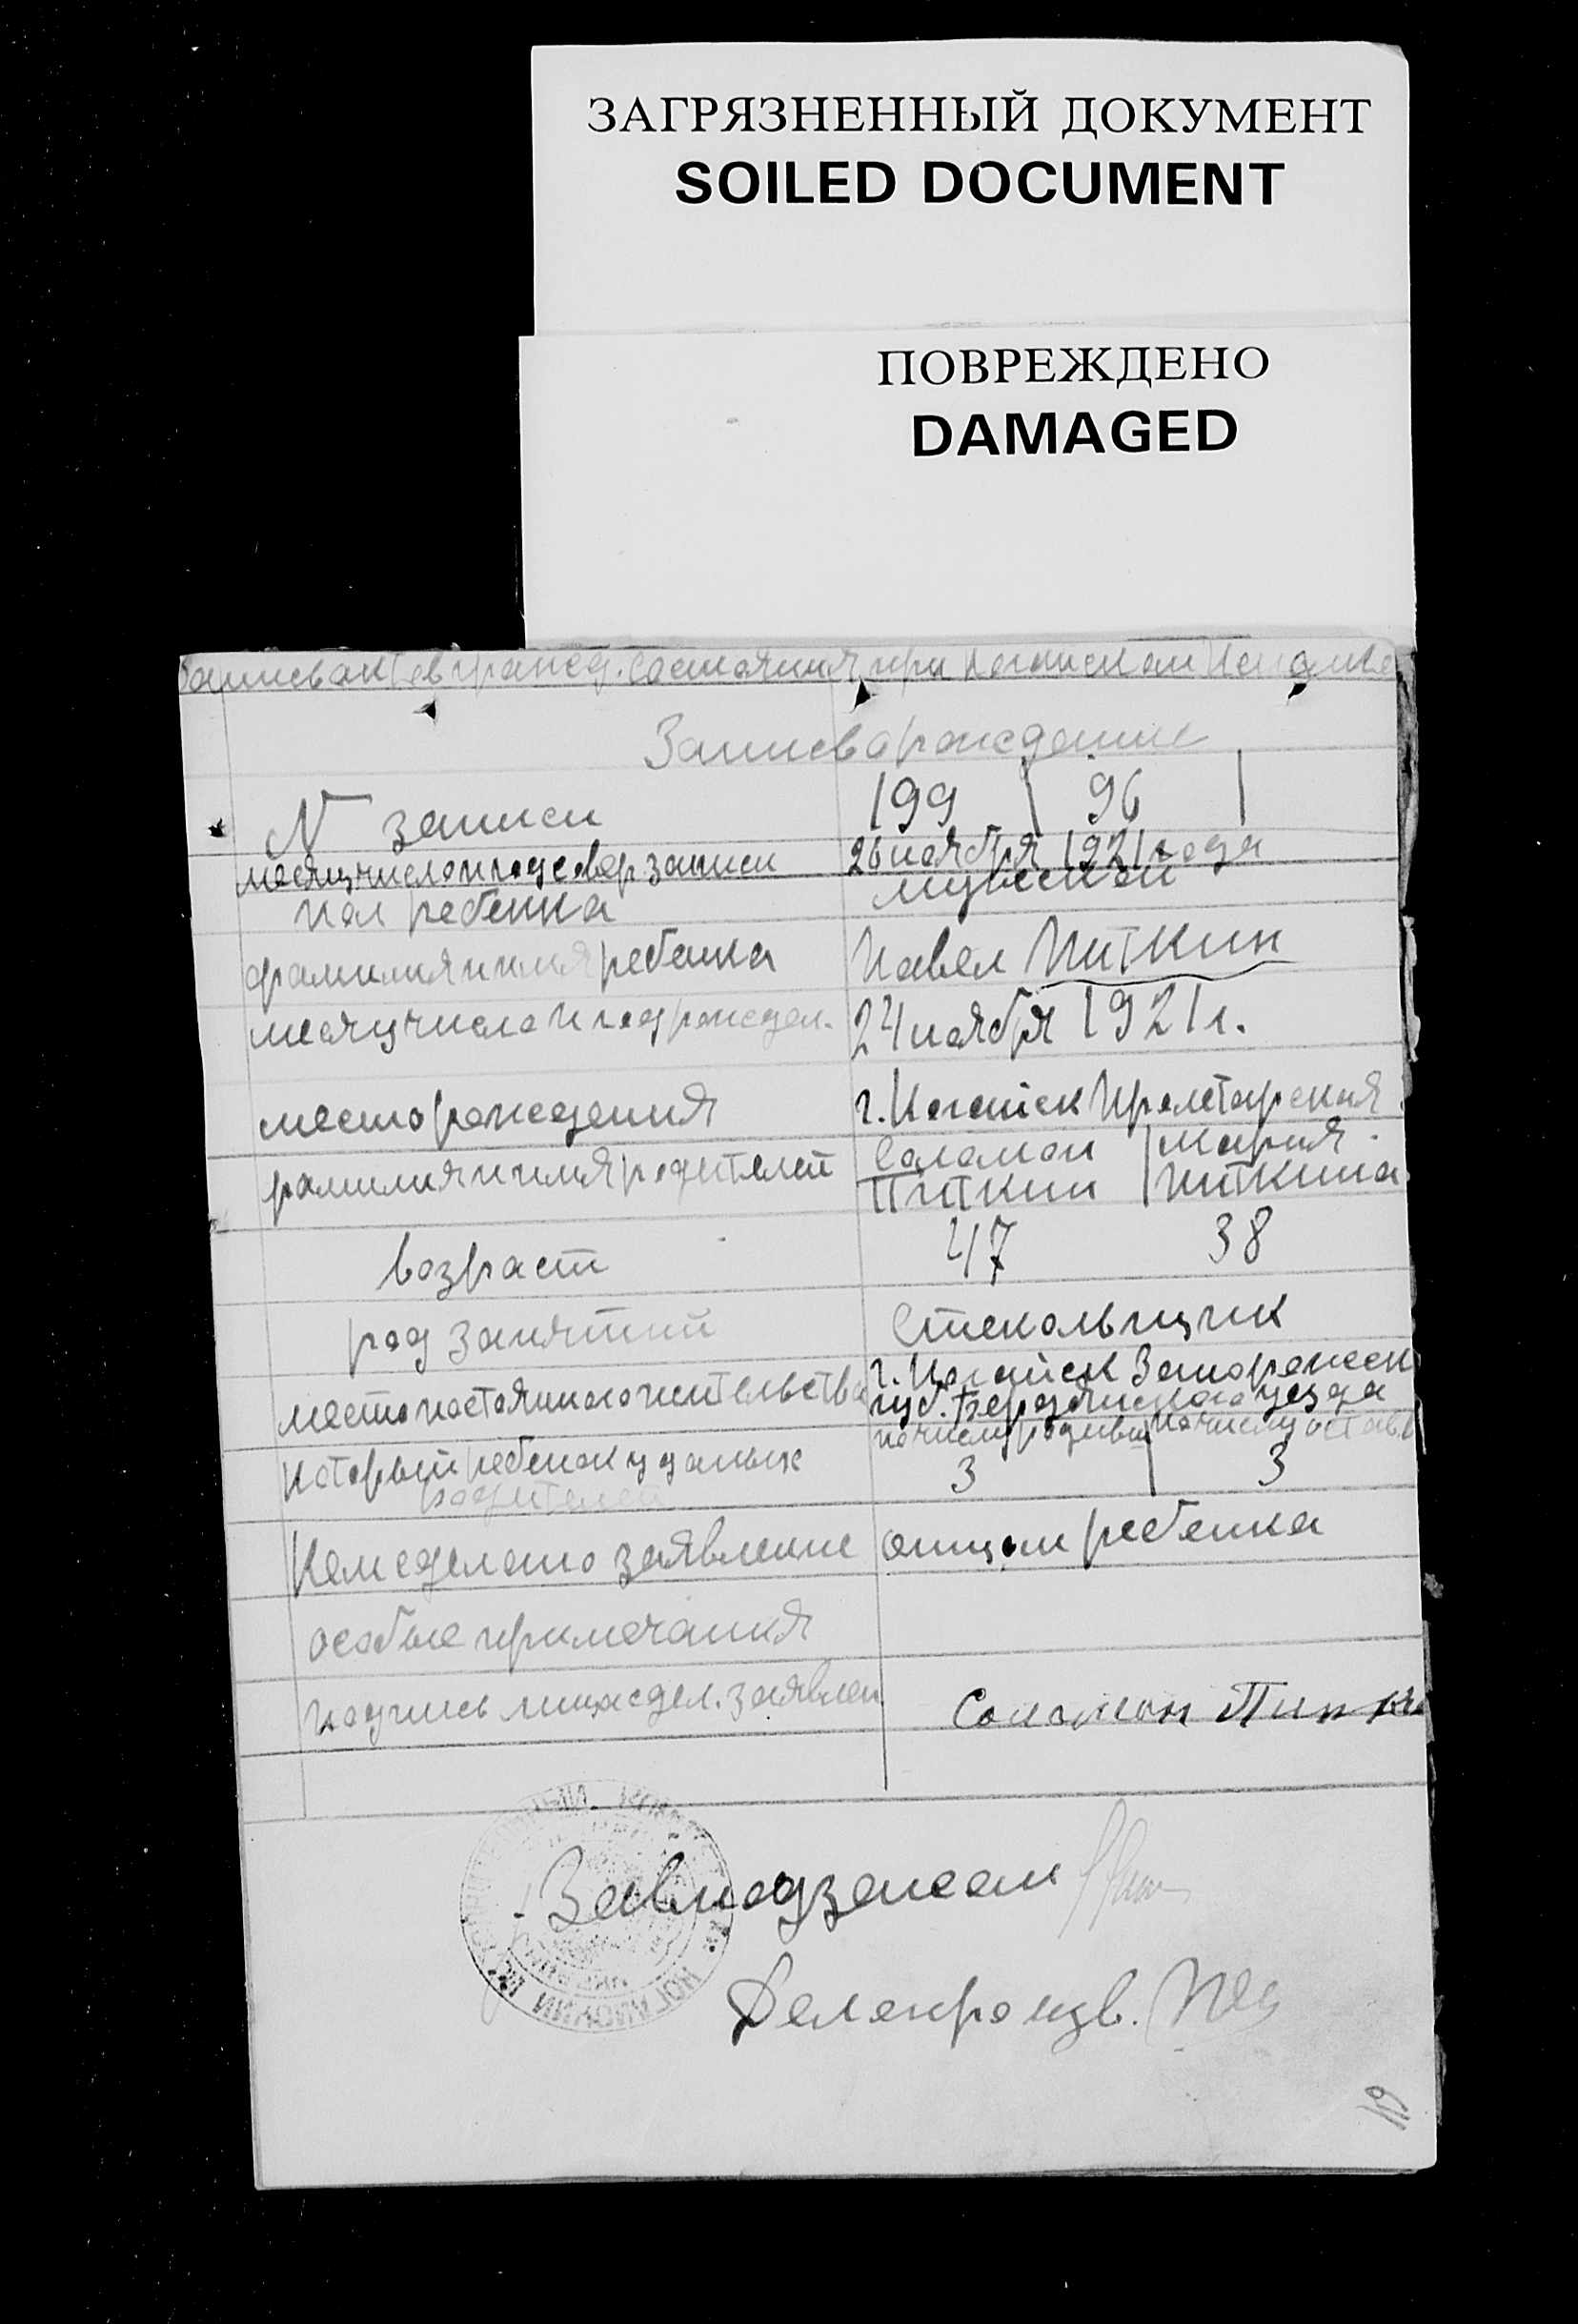 ЗАГРЯЗНЕННЫЙ ДОКУМЕНТ
SOILED DOCUMENT
ПОВРЕЖДЕНО
DAMAGED
Записьактов гражд. состояния при
Запись о рождение
N записи 199 | 96 |
месяц число и год совер записи 26 ноября 1921 года
пол ребенка мужской
фамилия и имя ребенка Павел Питкин
месяц число и год рождел. 24 ноября 1921 г.
место рождения г. Ногайск Пролетарская
фамилия и имя родителей Соломон Питкин | Мария Питкина
возраст 47 38
род занятий Стекольщик
место постоянного жительства г. Ногайск Запорожск
губ. Бердянского уезда
который ребенок у даных родителей по числу родивш | по числу оставл
3 | 3
Кем сделано заявление отцом ребенка
особые примечания
подпись лица сдел. заявлен Соломон
Завподзагсом
Делопроизв.